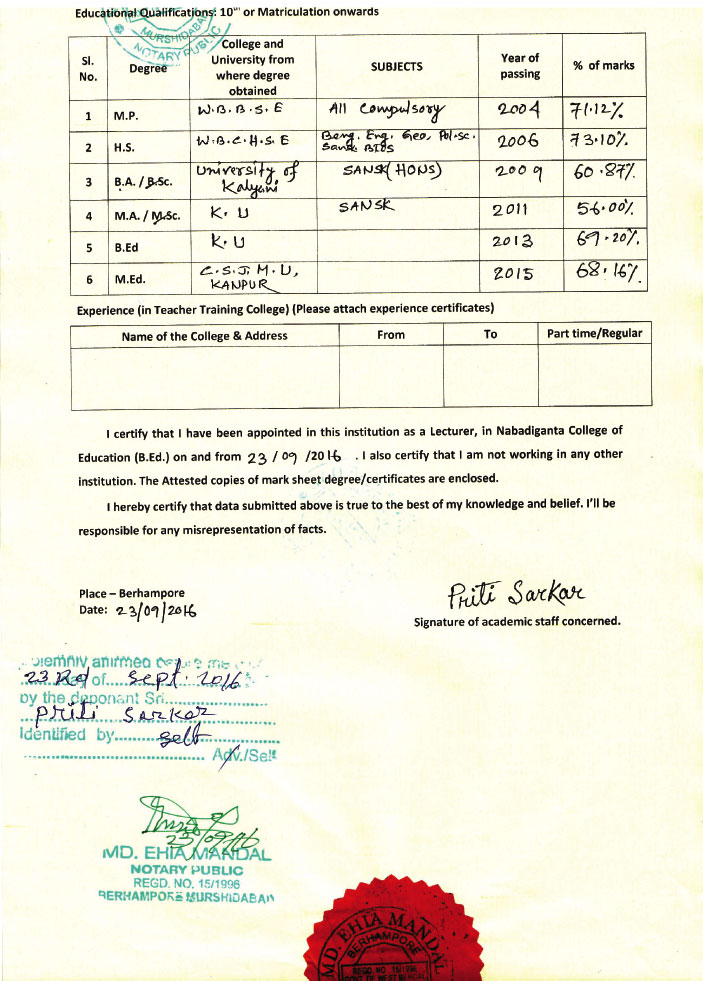 Educational Qualifications: 10th or Matriculation onwards
MURSHIDABAD
NOTARY PUBLIC
Sl. No. Degree College and University from where degree obtained SUBJECTS Year of passing % of marks
1 M.P. W.B.B.S.E All Compulsory 2004 71.12%
2 H.S. W.B.C.H.S.E Beng. Eng. Geo, Pol.sc. Sansk. 2006 73.10%
3 B.A. / B.Sc. University of Kalyani SANSK(HONS) 2009 60.87%
4 M.A. / M.Sc. K.U SANSK 2011 56.00%
5 B.Ed K.U 2013 69.20%
6 M.Ed. C.S.J.M.U, KANPUR 2015 68.16%
Experience (in Teacher Training College) (Please attach experience certificates)
Name of the College & Address From To Part time/Regular
I certify that I have been appointed in this institution as a Lecturer, in Nabadiganta College of
Education (B.Ed.) on and from 23/09/2016 . I also certify that I am not working in any other
institution. The Attested copies of mark sheet degree/certificates are enclosed.
I hereby certify that data submitted above is true to the best of my knowledge and belief. I'll be
responsible for any misrepresentation of facts.
Place – Berhampore
Date: 23/09/2016
Priti Sarkar
Signature of academic staff concerned.
Solemnly affirmed before me
23 Rd day of Sept. 2016
by the deponant Sri
Priti Sarkar
Identified by self
Adv./Self
23/09/16
MD. EHIA MANDAL
NOTARY PUBLIC
REGD. NO. 15/1996
BERHAMPORE MURSHIDABAD
MD. EHIA MANDAL
BERHAMPORE
REGD. NO 15/1996
GOVT. OF WEST BENGAL